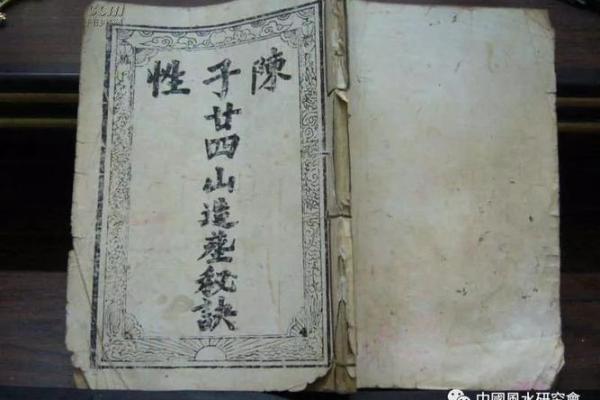 陳
子廿四山造塟秘訣
性
中國風水研究會